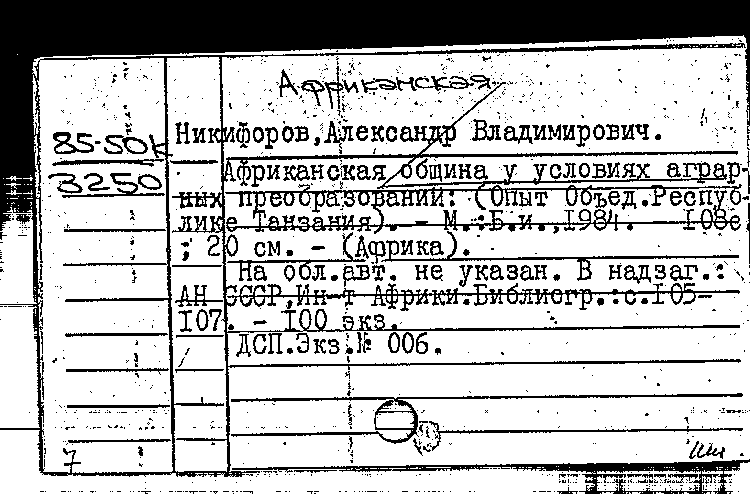 Африканская
85-50к
3250
Никифоров,Александр Владимирович.
Африканская община у условиях аграр-
ных преобразований: (Опыт Объед.Респуб-
лике Танзания). - М.:Б.и.,1984. - 108с
; 20 см. - (Африка).
На обл.авт. не указан. В надзаг.:
АН СССР,Ин-т Африки.Библиогр.:с.105-
107. - 100 экз.
ДСП.Экз.№ 006.
7